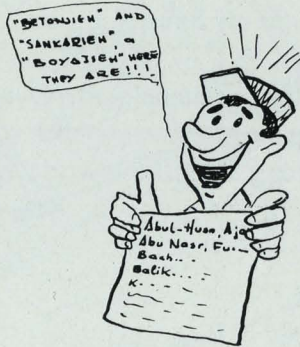 "BETONJIEH" AND
"SANKARIEH", a
"BOYAJIEH" HERE
THEY ARE!!!
Abul-Husn, Aja
Abu Nasr, Fu..—
Bach...
Balik....
K....